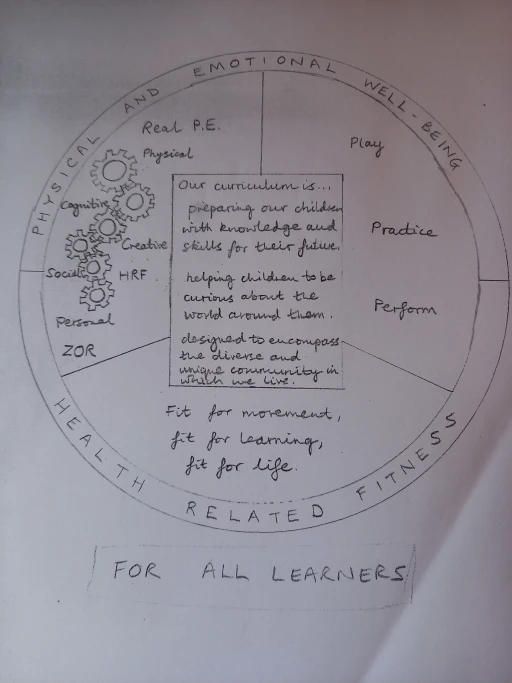 PHYSICAL AND EMOTIONAL WELL-BEING
Real P.E.
Physical
Cognitive
Creative
Social
HRF
Personal
ZOR
Play
Practice
Perform
Our curriculum is...
preparing our children
with knowledge and
skills for their future.
helping children to be
curious about the
world around them.
designed to encompass
the diverse and
unique community in
which we live.
Fit for movement,
fit for learning,
fit for life.
HEALTH RELATED FITNESS
FOR ALL LEARNERS